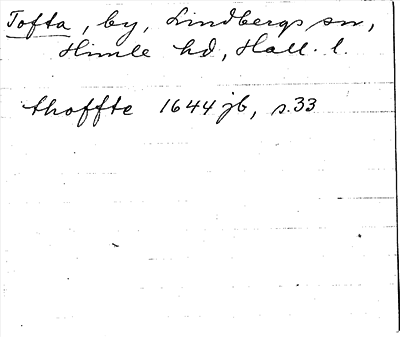 Tofta, by, Lindbergs sn,
Himle hd, Hall. l.
thoffte 1644 jb, s. 33